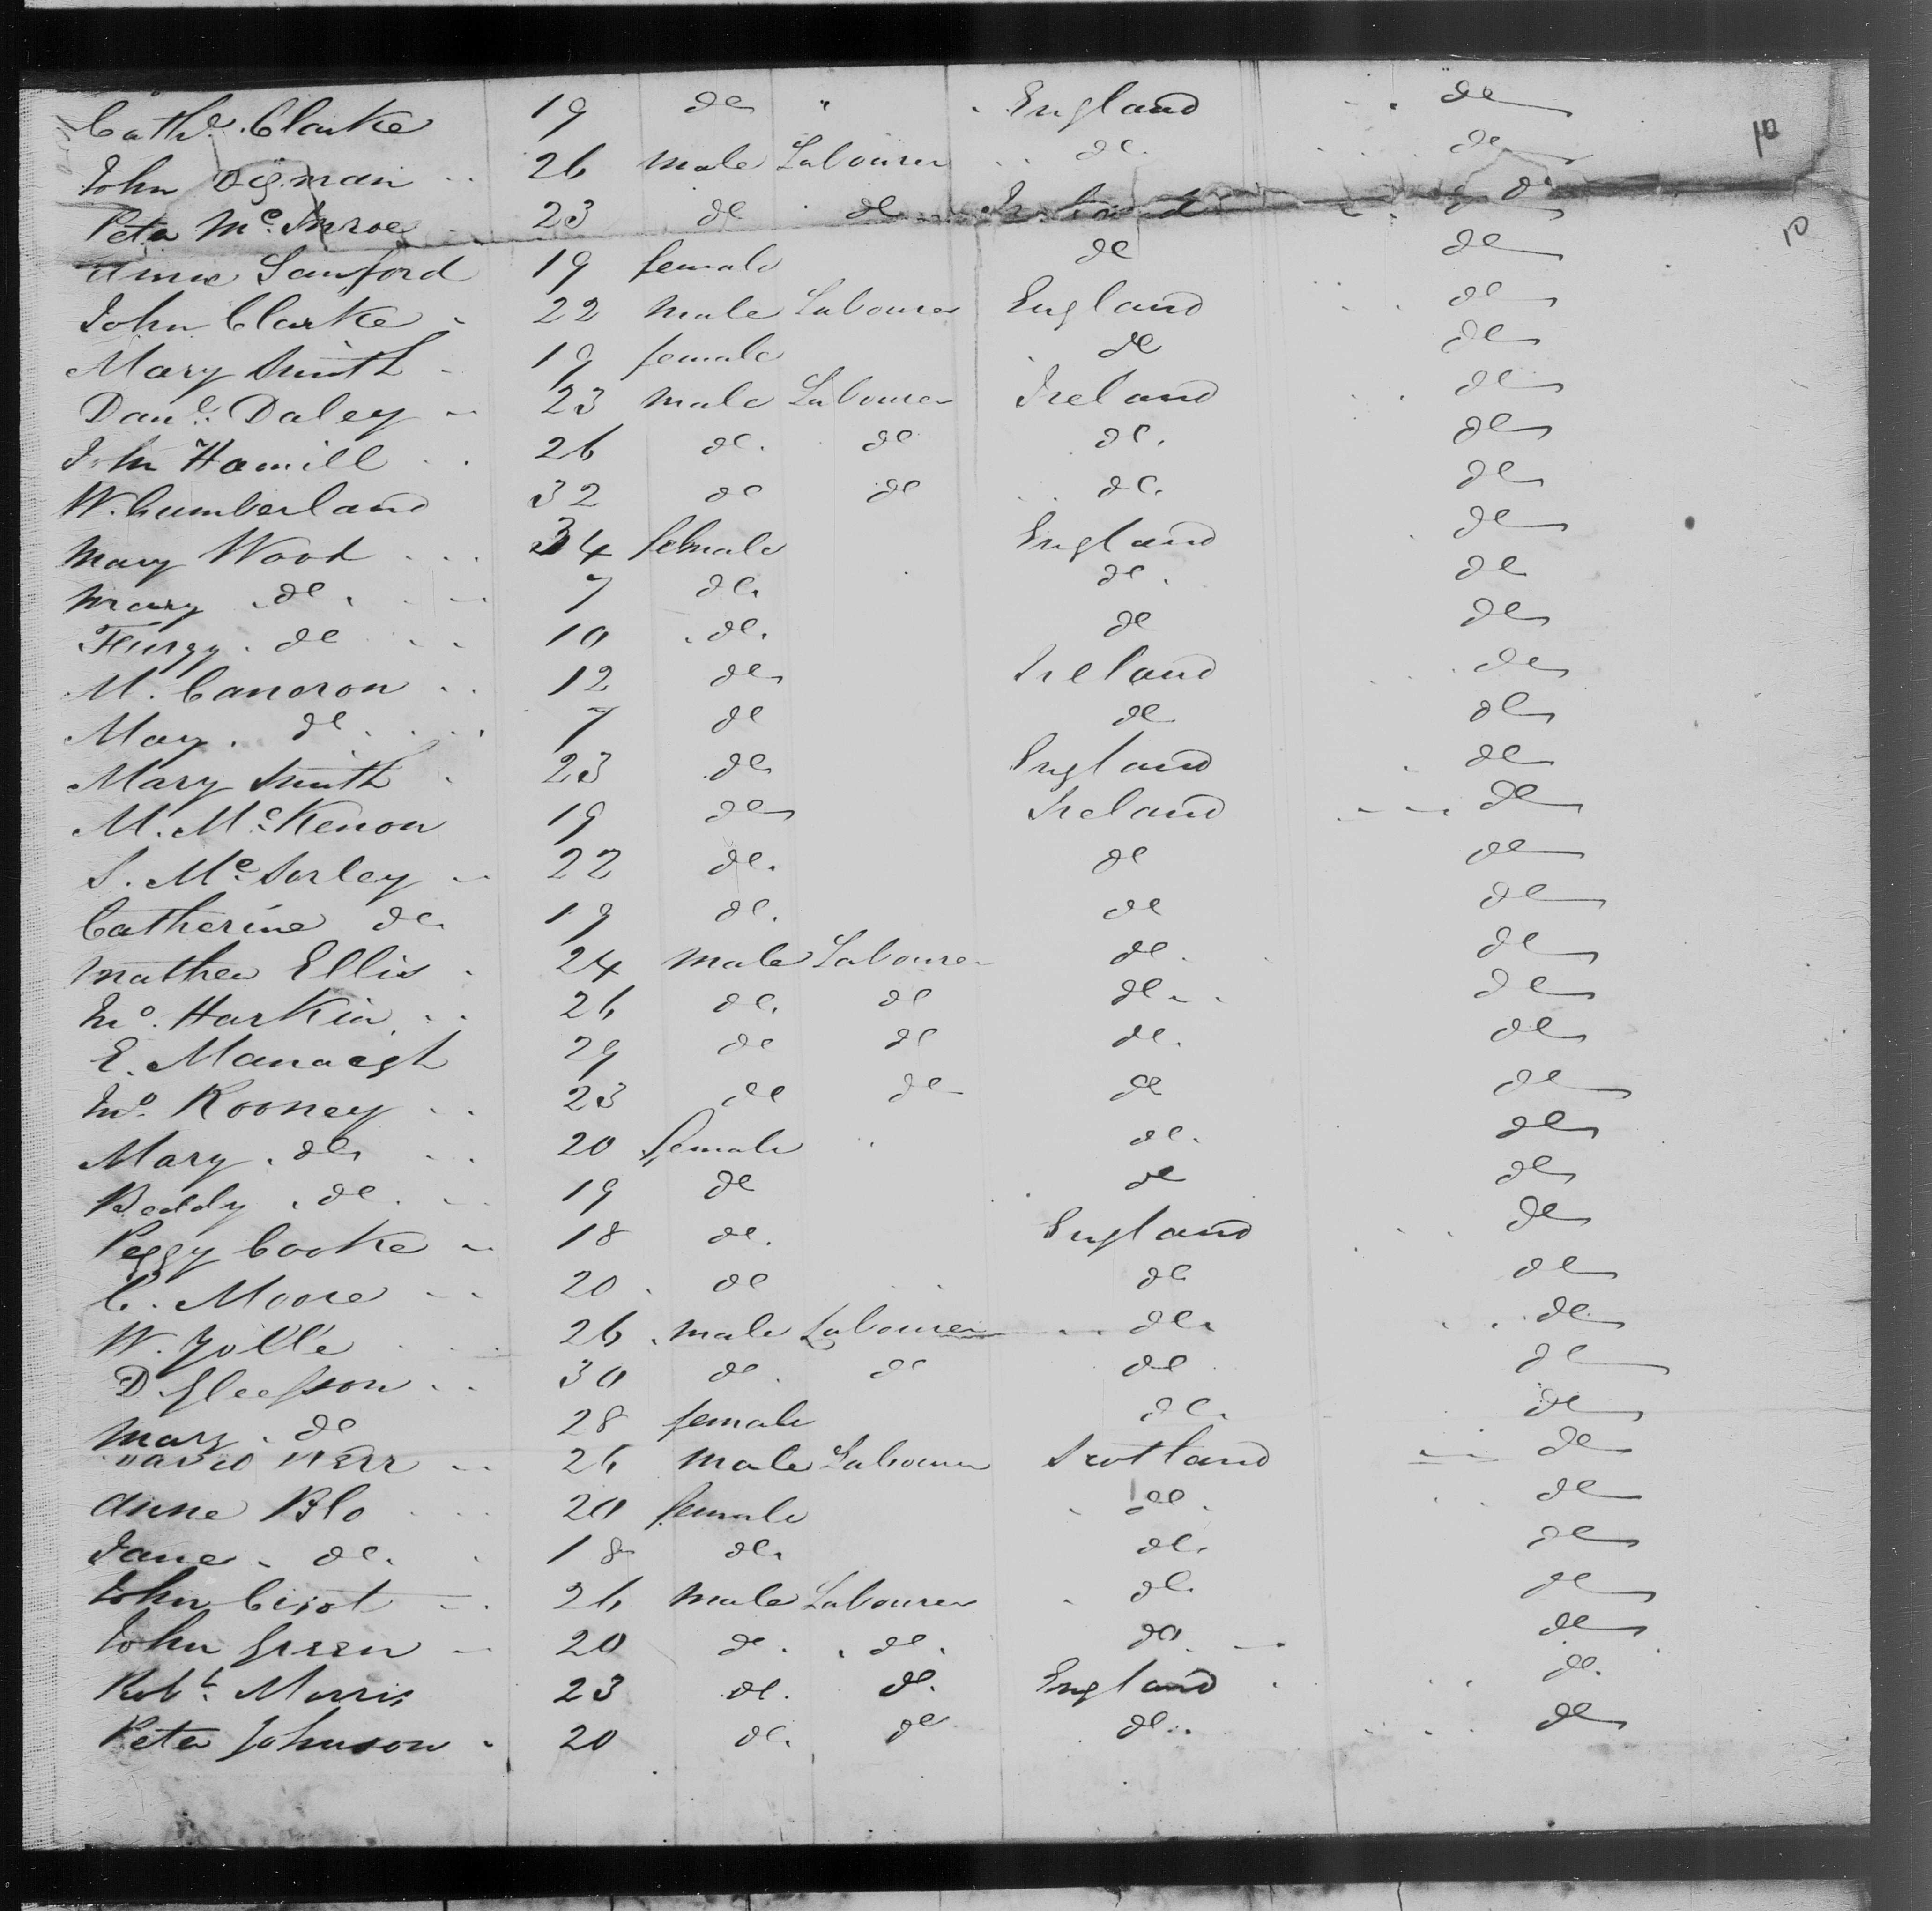 Cath.e Clarke 19 do " England do
John Digman 26 male Labourer do do 10
Peter Mc.Inroe 23 do do Ireland do 10
Anne Sanford 19 female do do
John Clarke 22 male Labourer England do
Mary Smith 19 female do do
Danl. Daley 23 male Labourer Ireland do
John Hamill 26 do. do do. do
W. Cumberland 32 do do do. do
Mary Wood 34 female England do
Mary do 7 do. do. do
do 10 do. do do
M. Cameron 12 do Ireland do
Mary. do 7 do do do
Mary Smith 23 do England do
M. Mc.Kenon 19 do Ireland do
S. Mc.Sorley 22 do. do do
Catherine do 19 do. do do
Mathew Ellis 24 male Labourer do. do
Jno. Harkin 26 do. do do do
E. Manaegh 29 do do do. do
Jno. Rooney 23 do do do do
Mary do 20 female do. do
Beddy do. 19 do do do
Peggy Cooke 18 do. England do
C. Moore 20 do do do
W. 26 male Labourer do. do
D. Gleesson 30 do. do do do
Mary do 28 female do. do
David Kerr 26 male Labourer Scotland do
Anne Blo 20 female do. do
Jane do. 18 do. do. do
John 26 male Labourer do. do
John Green 20 do. do. do. do
Robt. Morris 23 do. do. England do.
Peter Johnson 20 do. do do. do